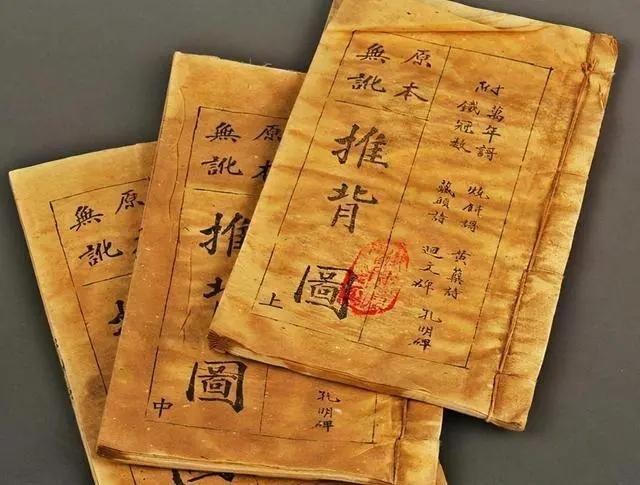 附
萬年謌
燒餅謌
黃蘗詩
鐵冠數
藏頭詩
迴文碑
孔明碑
原本
無訛
推背圖
上
原本
無訛
推
圖
中
孔明碑
原
無訛